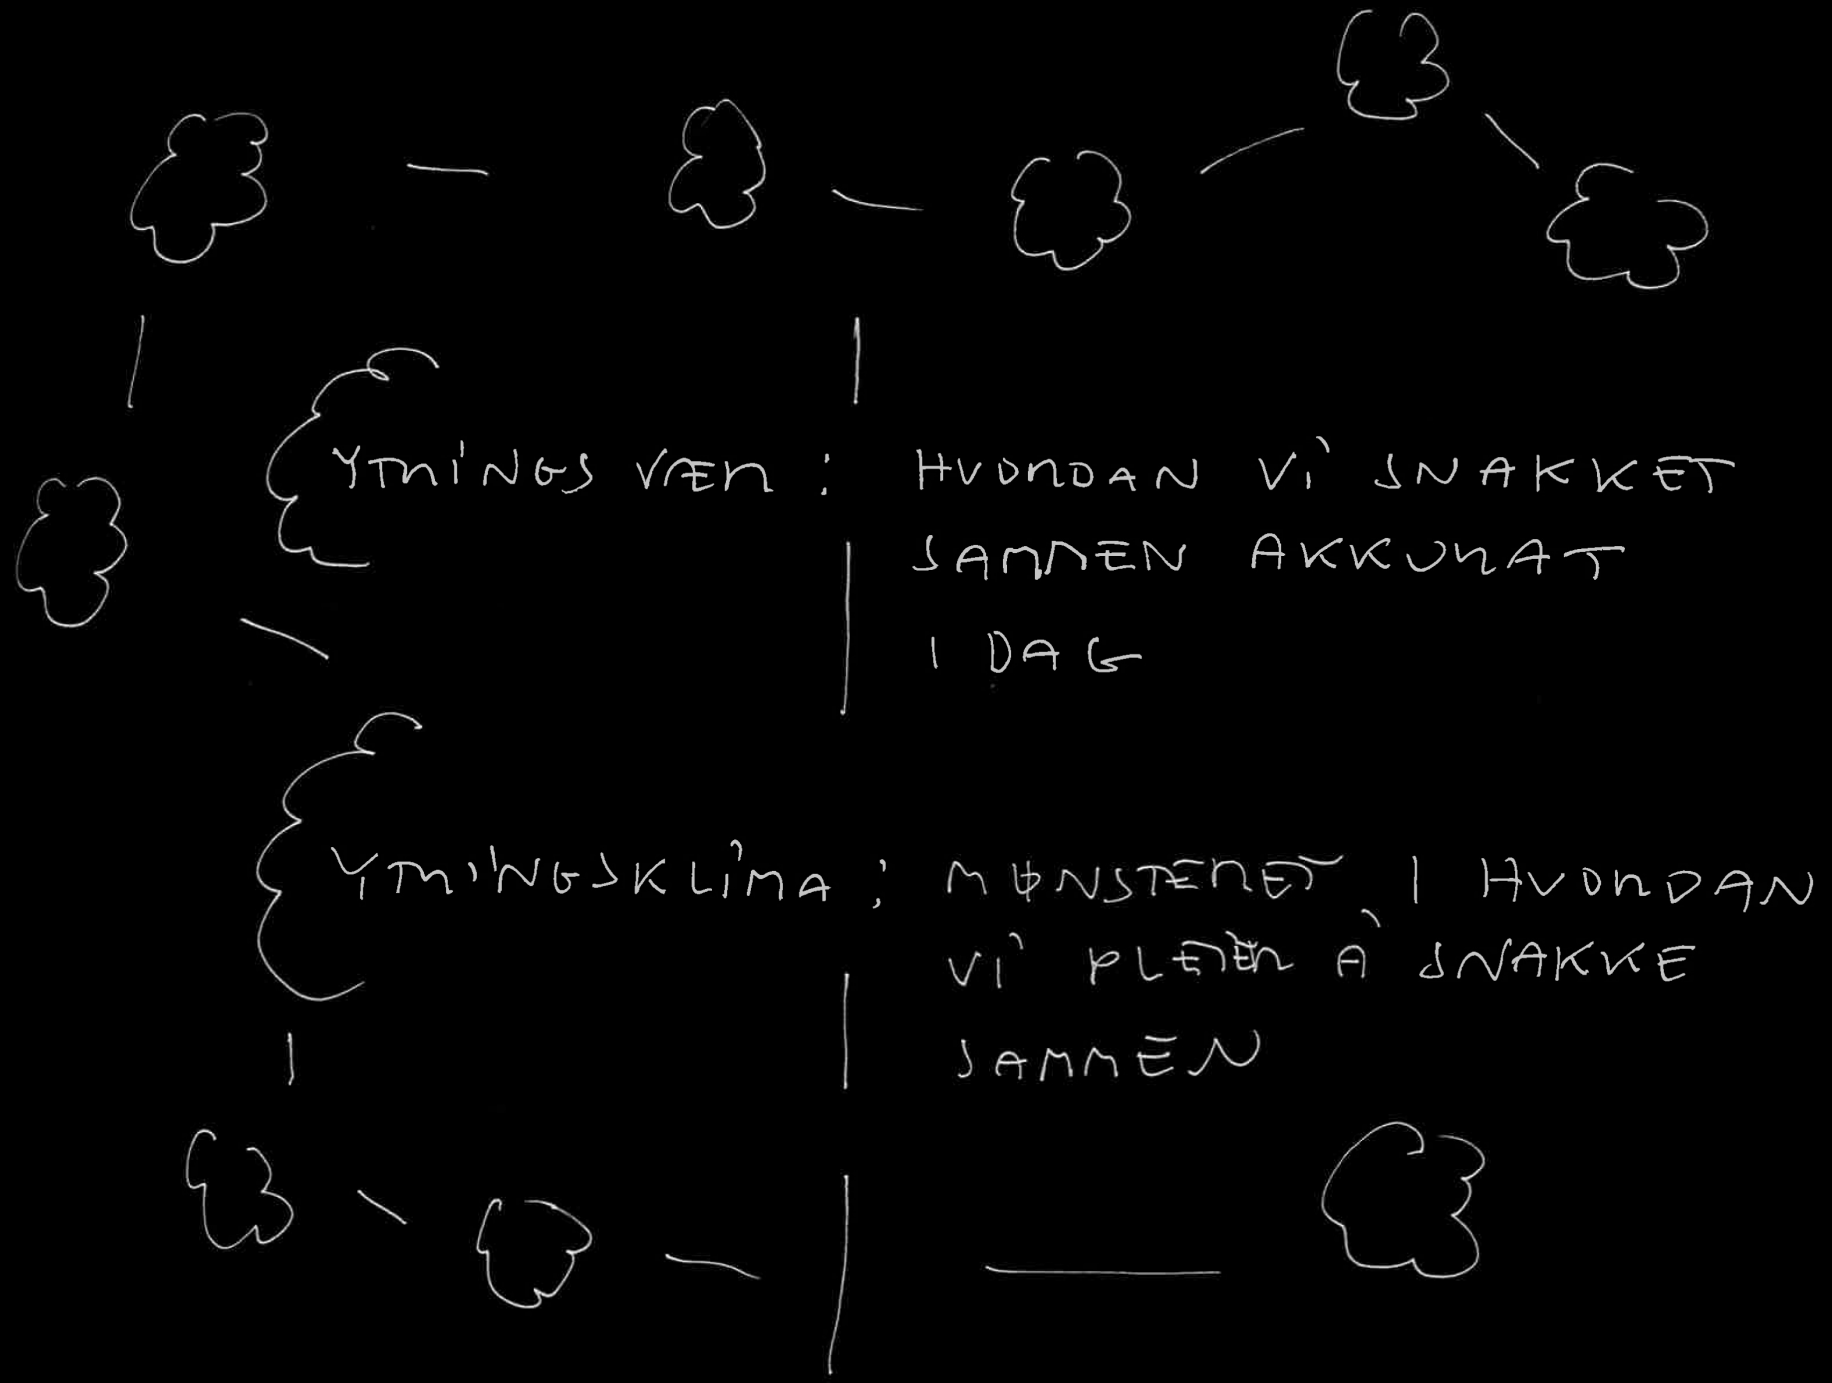 YTRINGSVÆR: HVORDAN VI SNAKKET
SAMMEN AKKURAT
I DAG
YTRINGSKLIMA: MØNSTERET I HVORDAN
VI PLEIER Å SNAKKE
SAMMEN